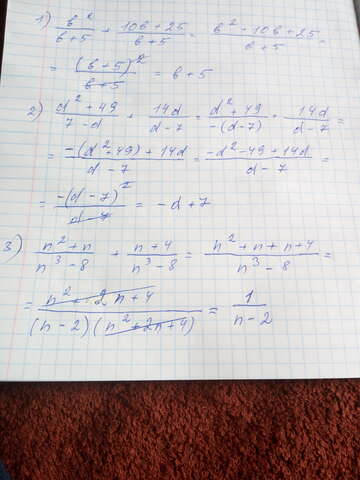 1) b²/(b+5) + (10b+25)/(b+5) = (b²+10b+25)/(b+5) =
= (b+5)²/(b+5) = b+5
2) (d²+49)/(7-d) + 14d/(d-7) = (d²+49)/(-(d-7)) + 14d/(d-7) =
= (-(d²+49)+14d)/(d-7) = (-d²-49+14d)/(d-7) =
= -(d-7)²/(d-7) = -d+7
3) (n²+n)/(n³-8) + (n+4)/(n³-8) = (n²+n+n+4)/(n³-8) =
= (n²+2n+4)/((n-2)(n²+2n+4)) = 1/(n-2)